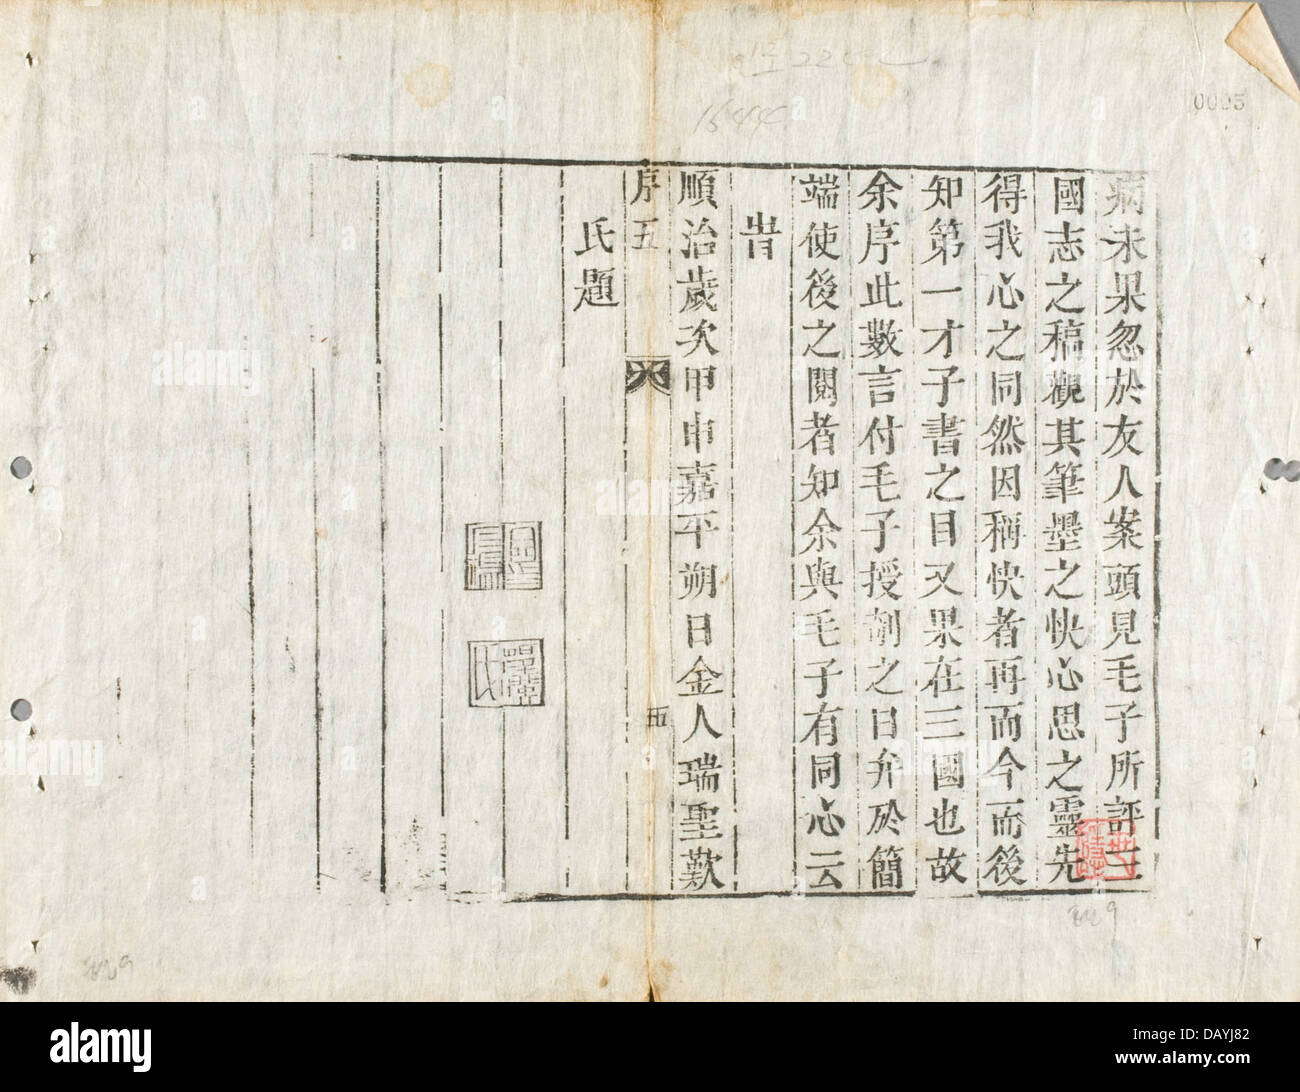 病未果忽於友人案頭見毛子所評三
國志之稿觀其筆墨之快心思之靈先
得我心之同然因稱快者再而今而後
知第一才子書之目又果在三國也故
余序此數言付毛子授剞之日弁於簡
端使後之閱者知余與毛子有同心云
旹
順治歲次甲申嘉平朔日金人瑞聖歎
序五
五
氏題
0005
1644
alamy
alamy
www.alamy.com
Image ID: DAYJ82